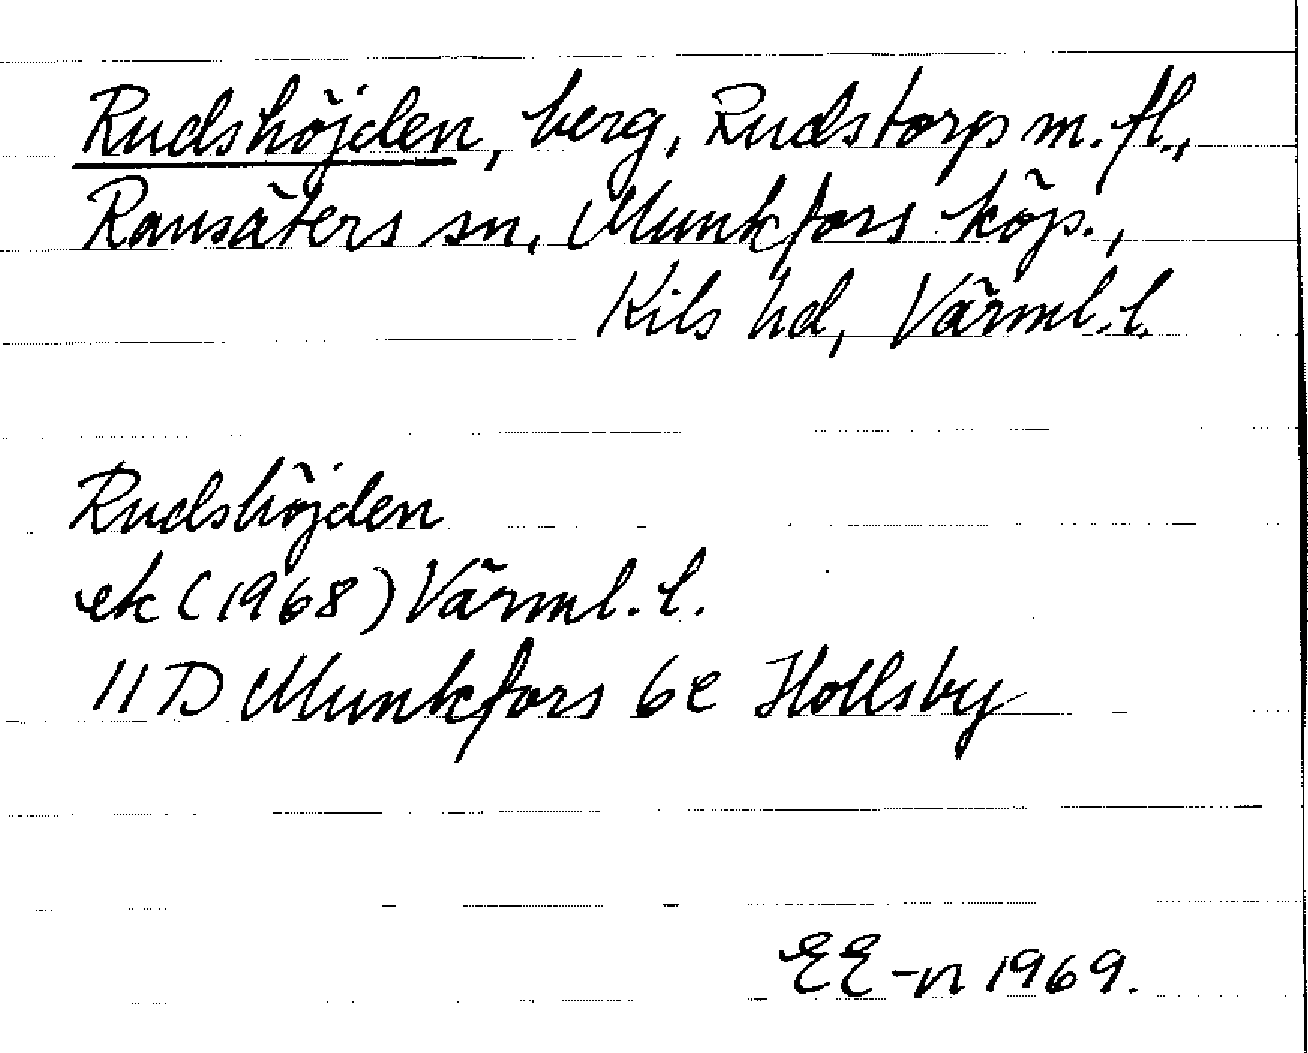 Rudshöjden, berg, Rudstorp m. fl.,
Ransäters sn, Munkfors köp.,
Kils hd, Värml. l.
Rudshöjden
ek (1968) Värml. l.
11 D Munkfors 6e Hollsby
EE-n 1969.